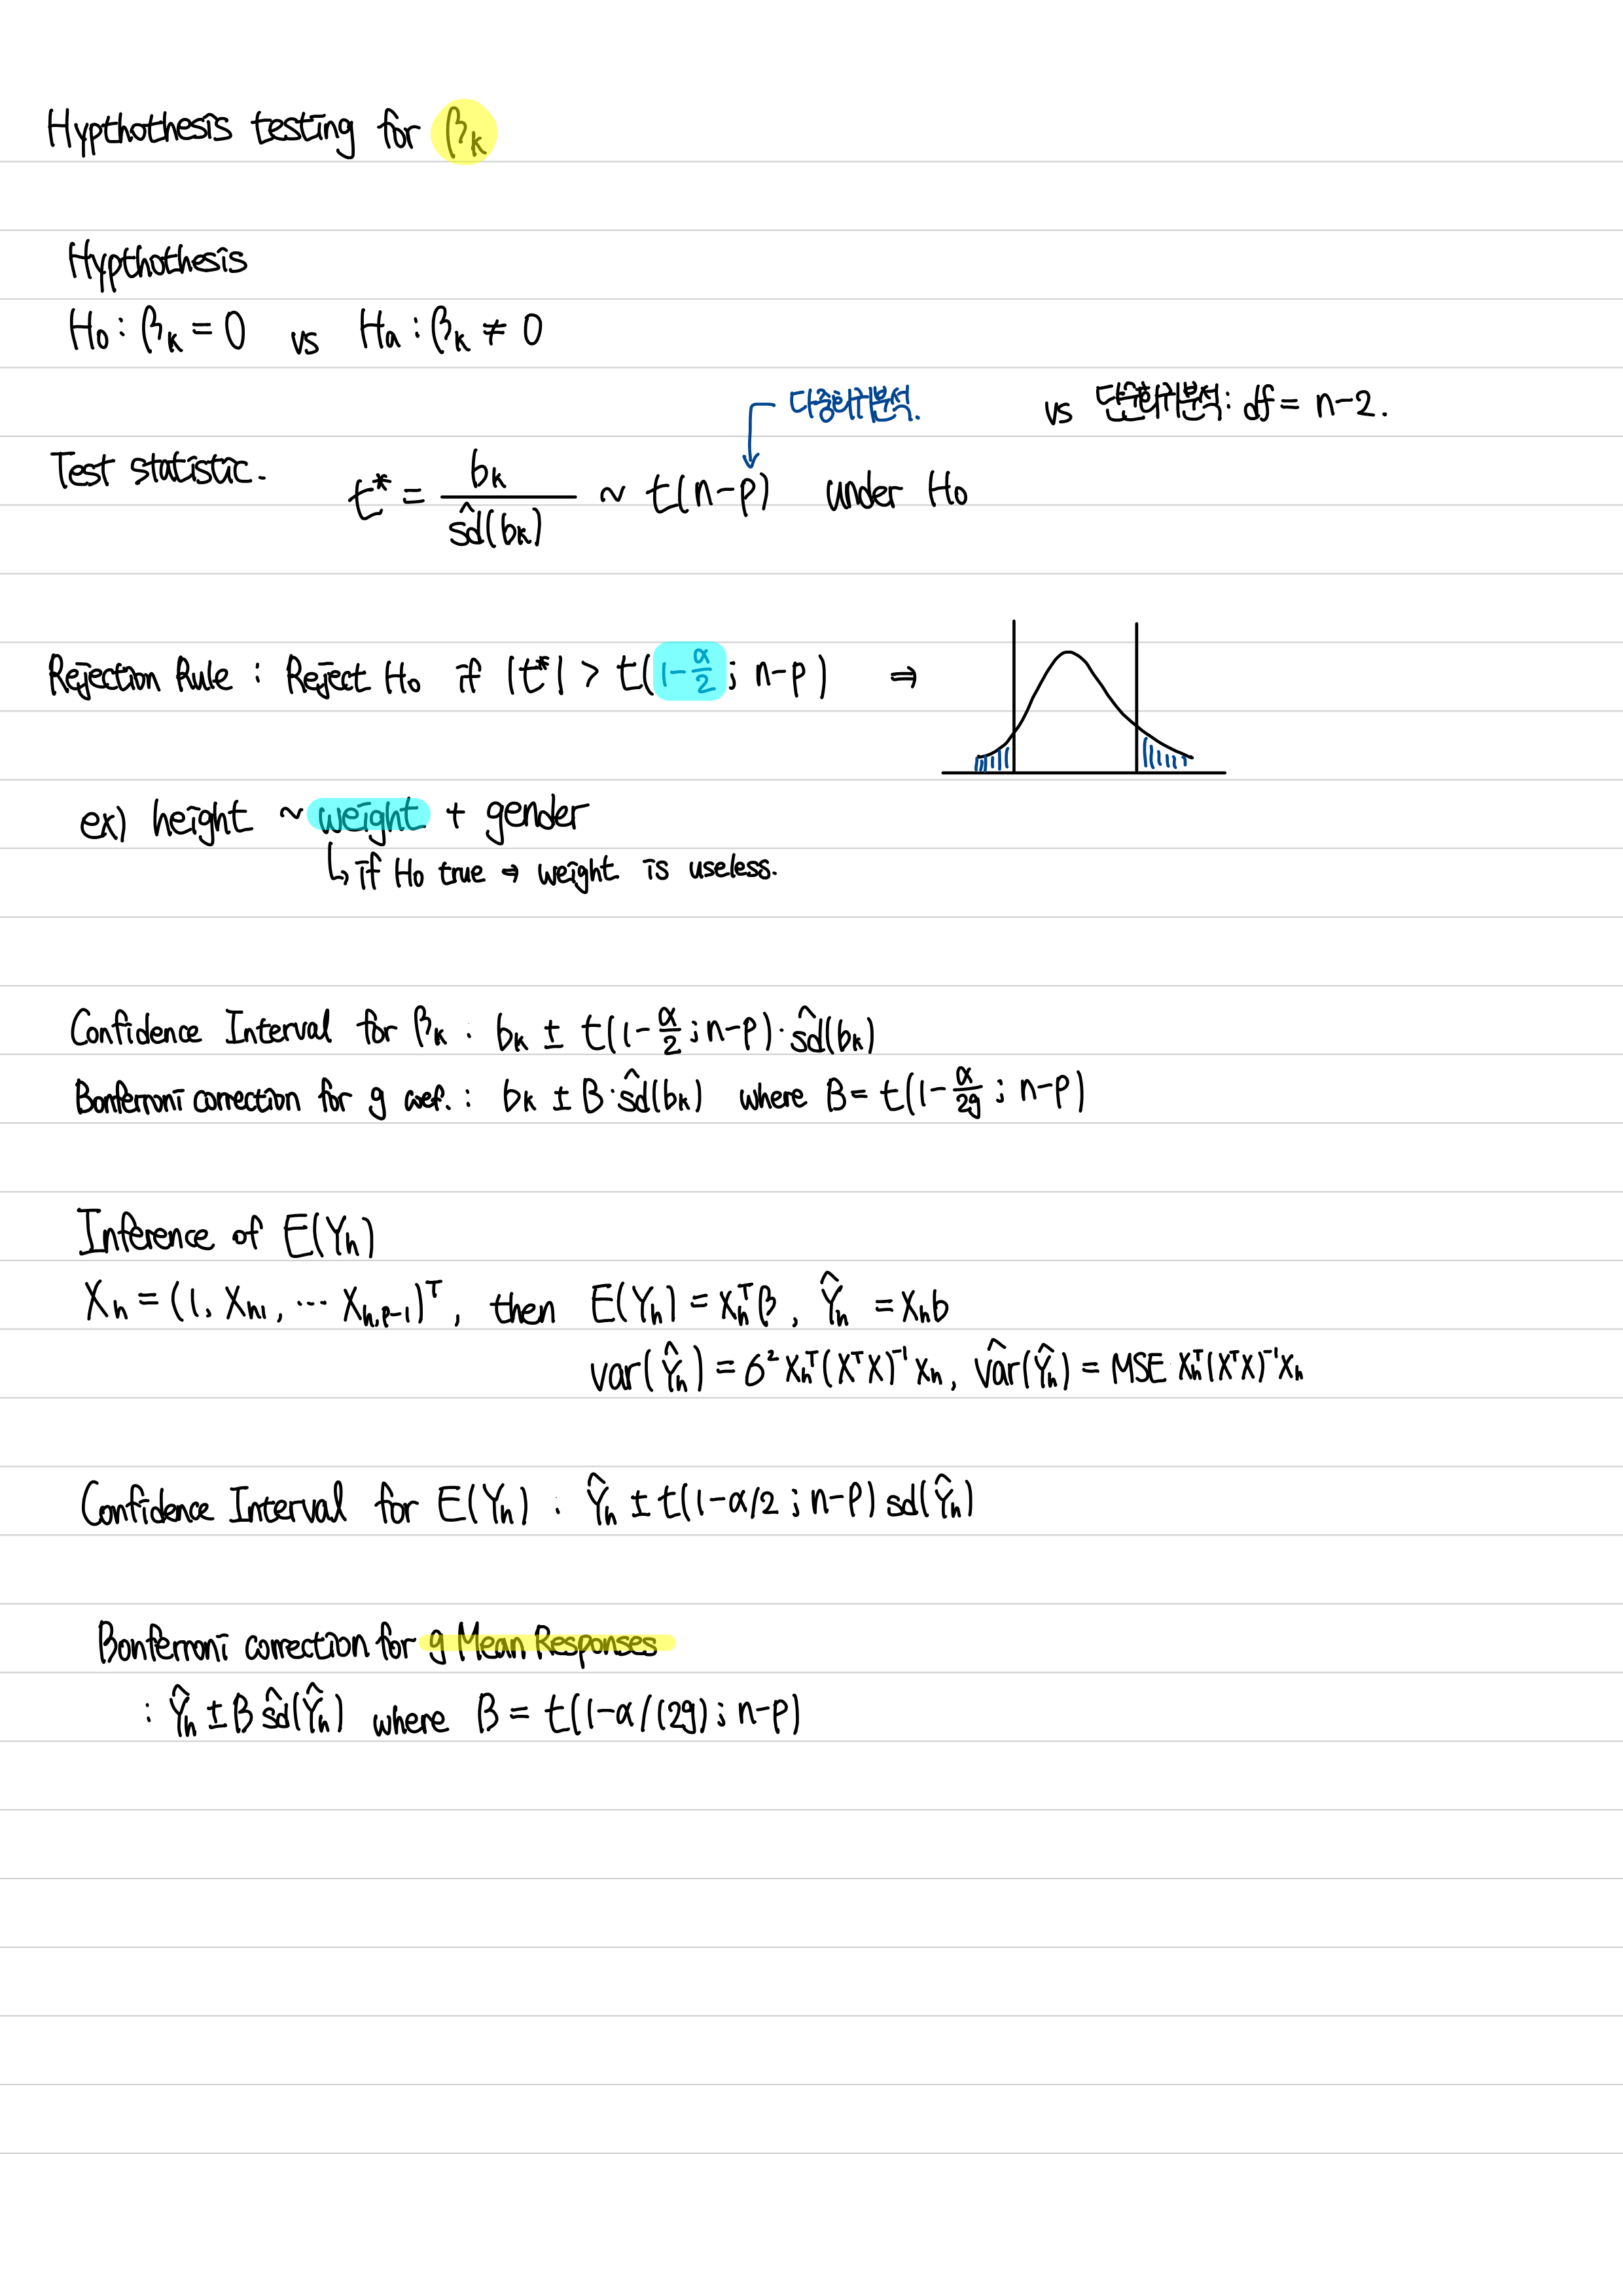 Hypthothesis testing for βk
Hypthothesis
H0 : βk = 0 vs Ha : βk ≠ 0
다중회귀분석. vs 단순회귀분석 : df = n-2.
Test statistic. t* = bk / ŝd(bk) ~ t(n-p) under H0
Rejection Rule : Reject H0 if |t*| > t(1-α/2 ; n-p) ⇒
ex) height ~ weight + gender
↳ if H0 true ⇒ weight is useless.
Confidence Interval for βk : bk ± t(1-α/2 ; n-p)·ŝd(bk)
Bonferroni correction for g coef. : bk ± B·ŝd(bk) where B = t(1-α/2g ; n-p)
Inference of E(Yh)
Xh = (1, Xh1, ... Xh,p-1)ᵀ, then E(Yh) = Xhᵀβ, Ŷh = Xhb
var(Ŷh) = σ² Xhᵀ(XᵀX)⁻¹Xh, v̂ar(Ŷh) = MSE Xhᵀ(XᵀX)⁻¹Xh
Confidence Interval for E(Yh) : Ŷh ± t(1-α/2 ; n-p) sd(Ŷh)
Bonferroni correction for g Mean Responses
: Ŷh ± B ŝd(Ŷh) where B = t(1-α/(2g) ; n-p)